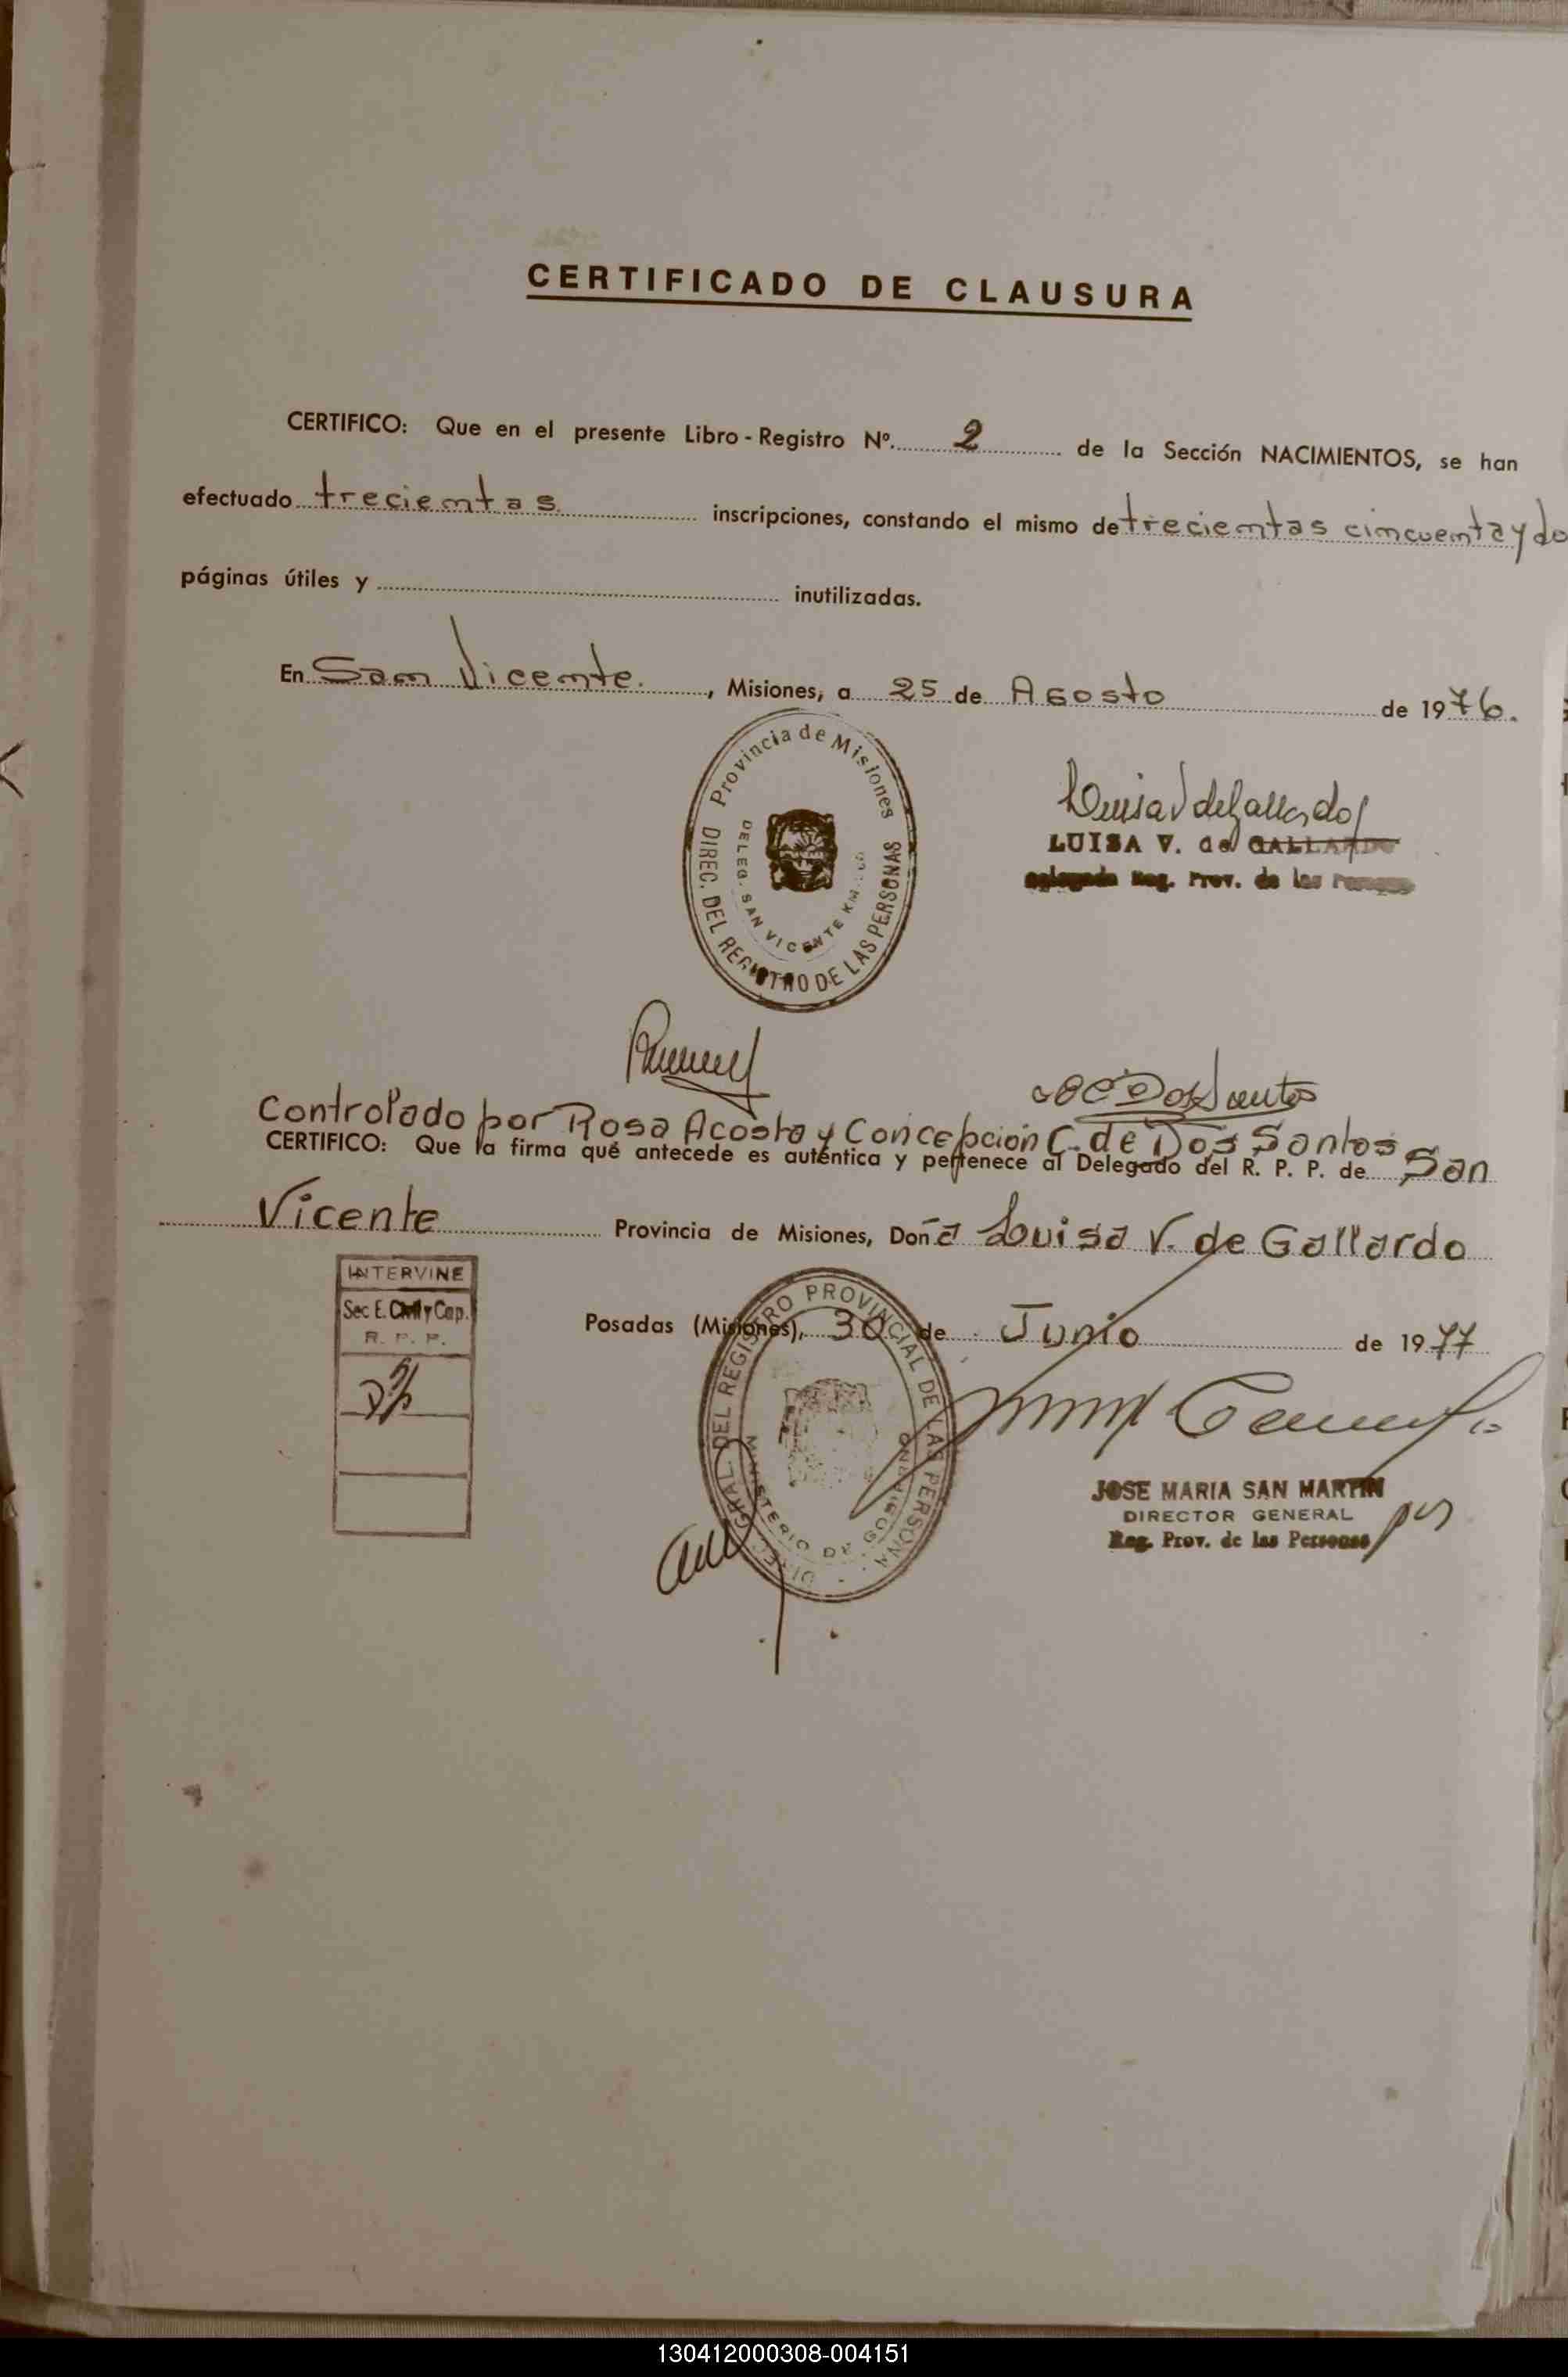 CERTIFICADO DE CLAUSURA
CERTIFICO: Que en el presente Libro-Registro Nº 2 de la Sección NACIMIENTOS, se han
efectuado trecientas inscripciones, constando el mismo de trecientas cincuenta y do
páginas útiles y inutilizadas.
En San Vicente., Misiones, a 25 de Agosto de 1976.
Provincia de Misiones
DIREC. DEL REGISTRO DE LAS PERSONAS
DELEG. SAN VICENTE KM.
Luisa V de Gallardo
LUISA V. de GALLARDO
Delegada Reg. Prov. de las Personas
Controlado por Rosa Acosta y Concepción C. de Dos Santos
CERTIFICO: Que la firma que antecede es auténtica y pertenece al Delegado del R. P. P. de San
Vicente Provincia de Misiones, Doña Luisa V. de Gallardo
INTERVINE
Sec E. Civil y Cap.
R. P. P.
Posadas (Misiones), 30 de Junio de 1977
DIREC. GRAL. DEL REGISTRO PROVINCIAL DE LAS PERSONAS
MINISTERIO DE GOBIERNO
JOSE MARIA SAN MARTIN
DIRECTOR GENERAL
Reg. Prov. de las Personas
130412000308-004151